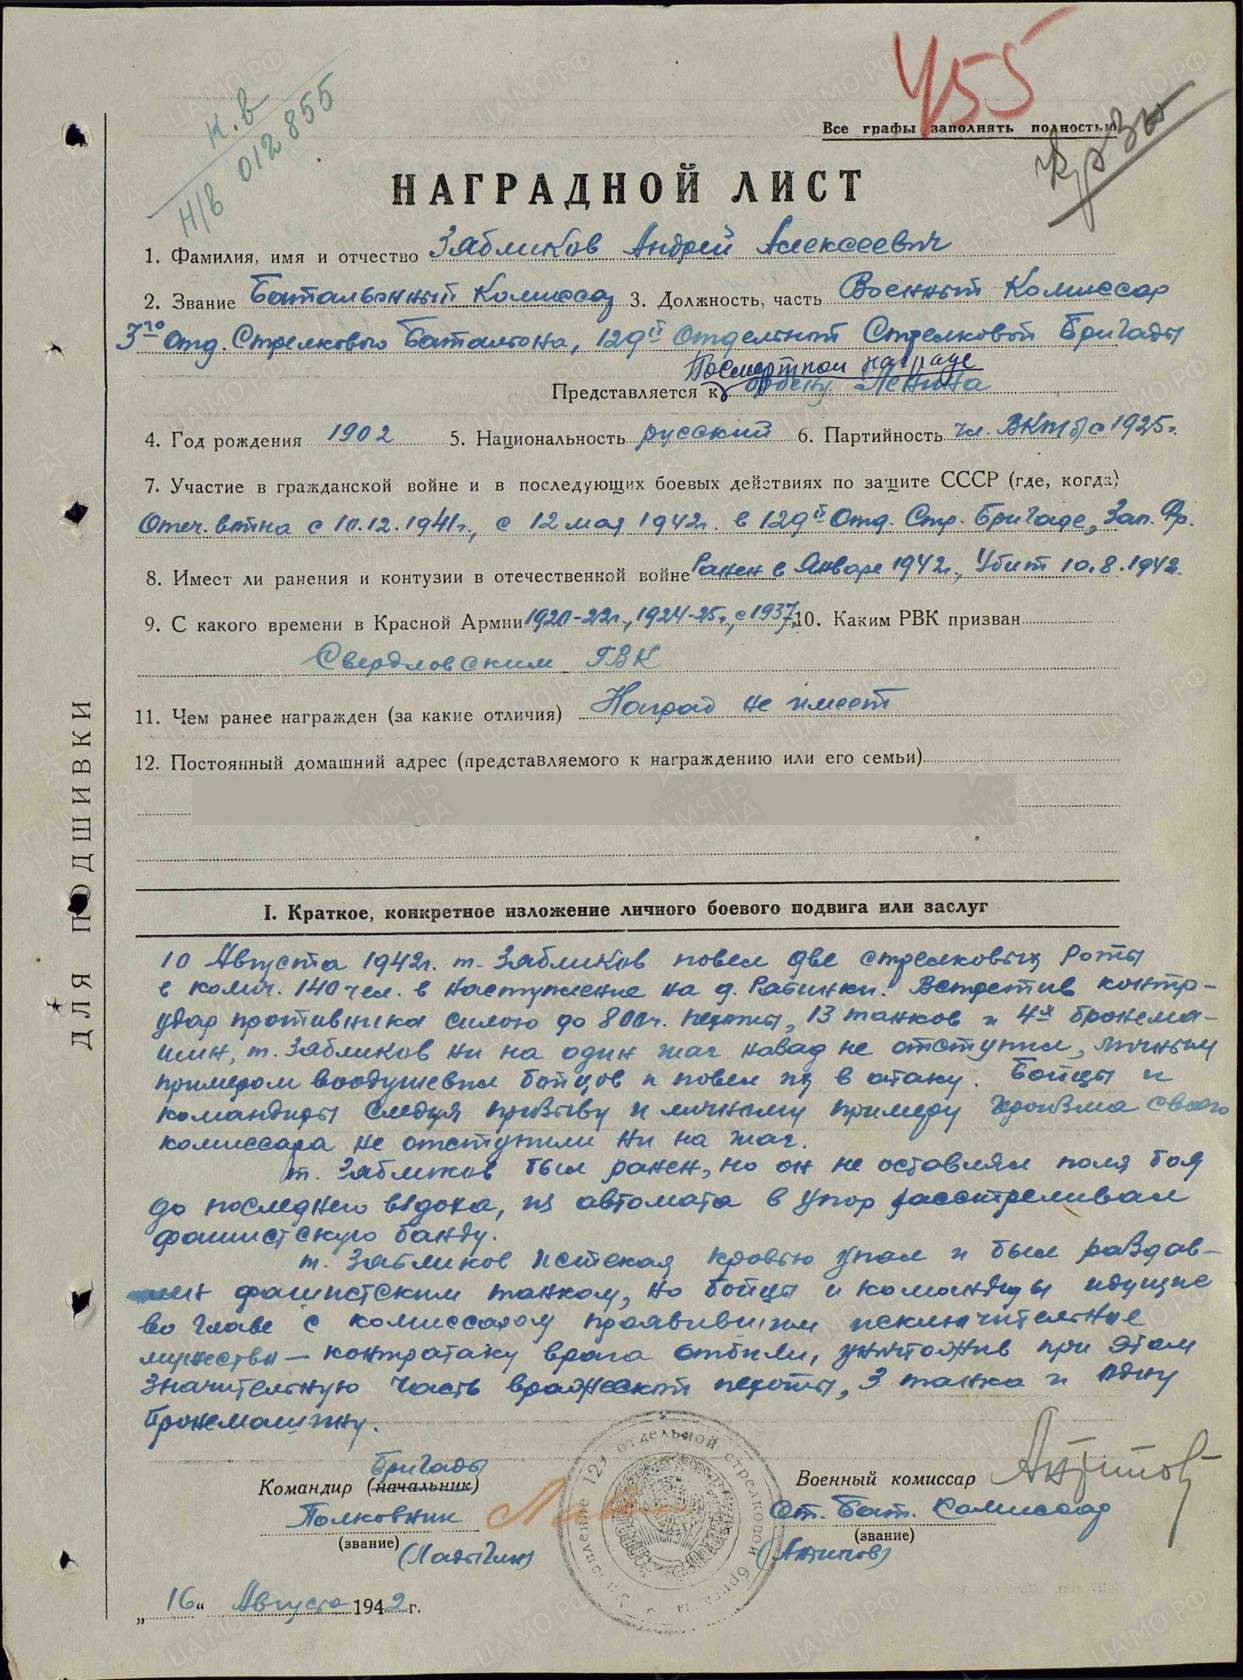 455
н.в
Н/в 012855
Все графы заполнять полностью
НАГРАДНОЙ ЛИСТ
1. Фамилия, имя и отчество Зябликов Андрей Алексеевич
2. Звание Батальонный Комиссар 3. Должность, часть Военный Комиссар
3го Отд. Стрелкового Батальона, 129й Отдельной Стрелковой Бригады
Посмертной награде
Представляется к ордену Ленина
4. Год рождения 1902 5. Национальность русский 6. Партийность чл. ВКП(б) с 1925г.
7. Участие в гражданской войне и в последующих боевых действиях по защите СССР (где, когда)
Отеч. война с 10.12.1941г., с 12 мая 1942г. в 129й Отд. Стр. Бригаде, Зап. Фр.
8. Имеет ли ранения и контузии в отечественной войне Ранен в Январе 1942г., Убит 10.8.1942.
9. С какого времени в Красной Армии 1920-22г., 1924-25г., с 1937. 10. Каким РВК призван
Свердловским ГВК
11. Чем ранее награжден (за какие отличия) Наград не имеет
12. Постоянный домашний адрес (представляемого к награждению или его семьи)
ДЛЯ ПОДШИВКИ
I. Краткое, конкретное изложение личного боевого подвига или заслуг
10 Августа 1942г. т. Зябликов повел две стрелковых роты
в колич. 140 чел. в наступление на д. Рябинки. Встретив контр-
удар противника силою до 800ч. пехоты, 13 танков и 4х бронема-
шин, т. Зябликов ни на один шаг назад не отступил, личным
примером воодушевил бойцов и повел их в атаку. Бойцы и
командиры следуя призыву и личному примеру героизма своего
комиссара не отступили ни на шаг.
т. Зябликов был ранен, но он не оставлял поля боя
до последнего вздоха, из автомата в упор расстреливал
фашистскую банду.
т. Зябликов истекая кровью упал и был раздав-
лен фашистским танком, но бойцы и командиры идущие
во главе с комиссаром проявившим исключительное
мужество — контратаку врага отбили, уничтожив при этом
значительную часть вражеской пехоты, 3 танка и одну
бронемашину.
Бригады
Командир (начальник) Военный комиссар Антипов
Полковник Ст. Бат. Комиссар
(звание) (звание)
(Ладыгин) (Антипов)
129 отдельной стрелковой бригады
„16“ Августа 1942 г.